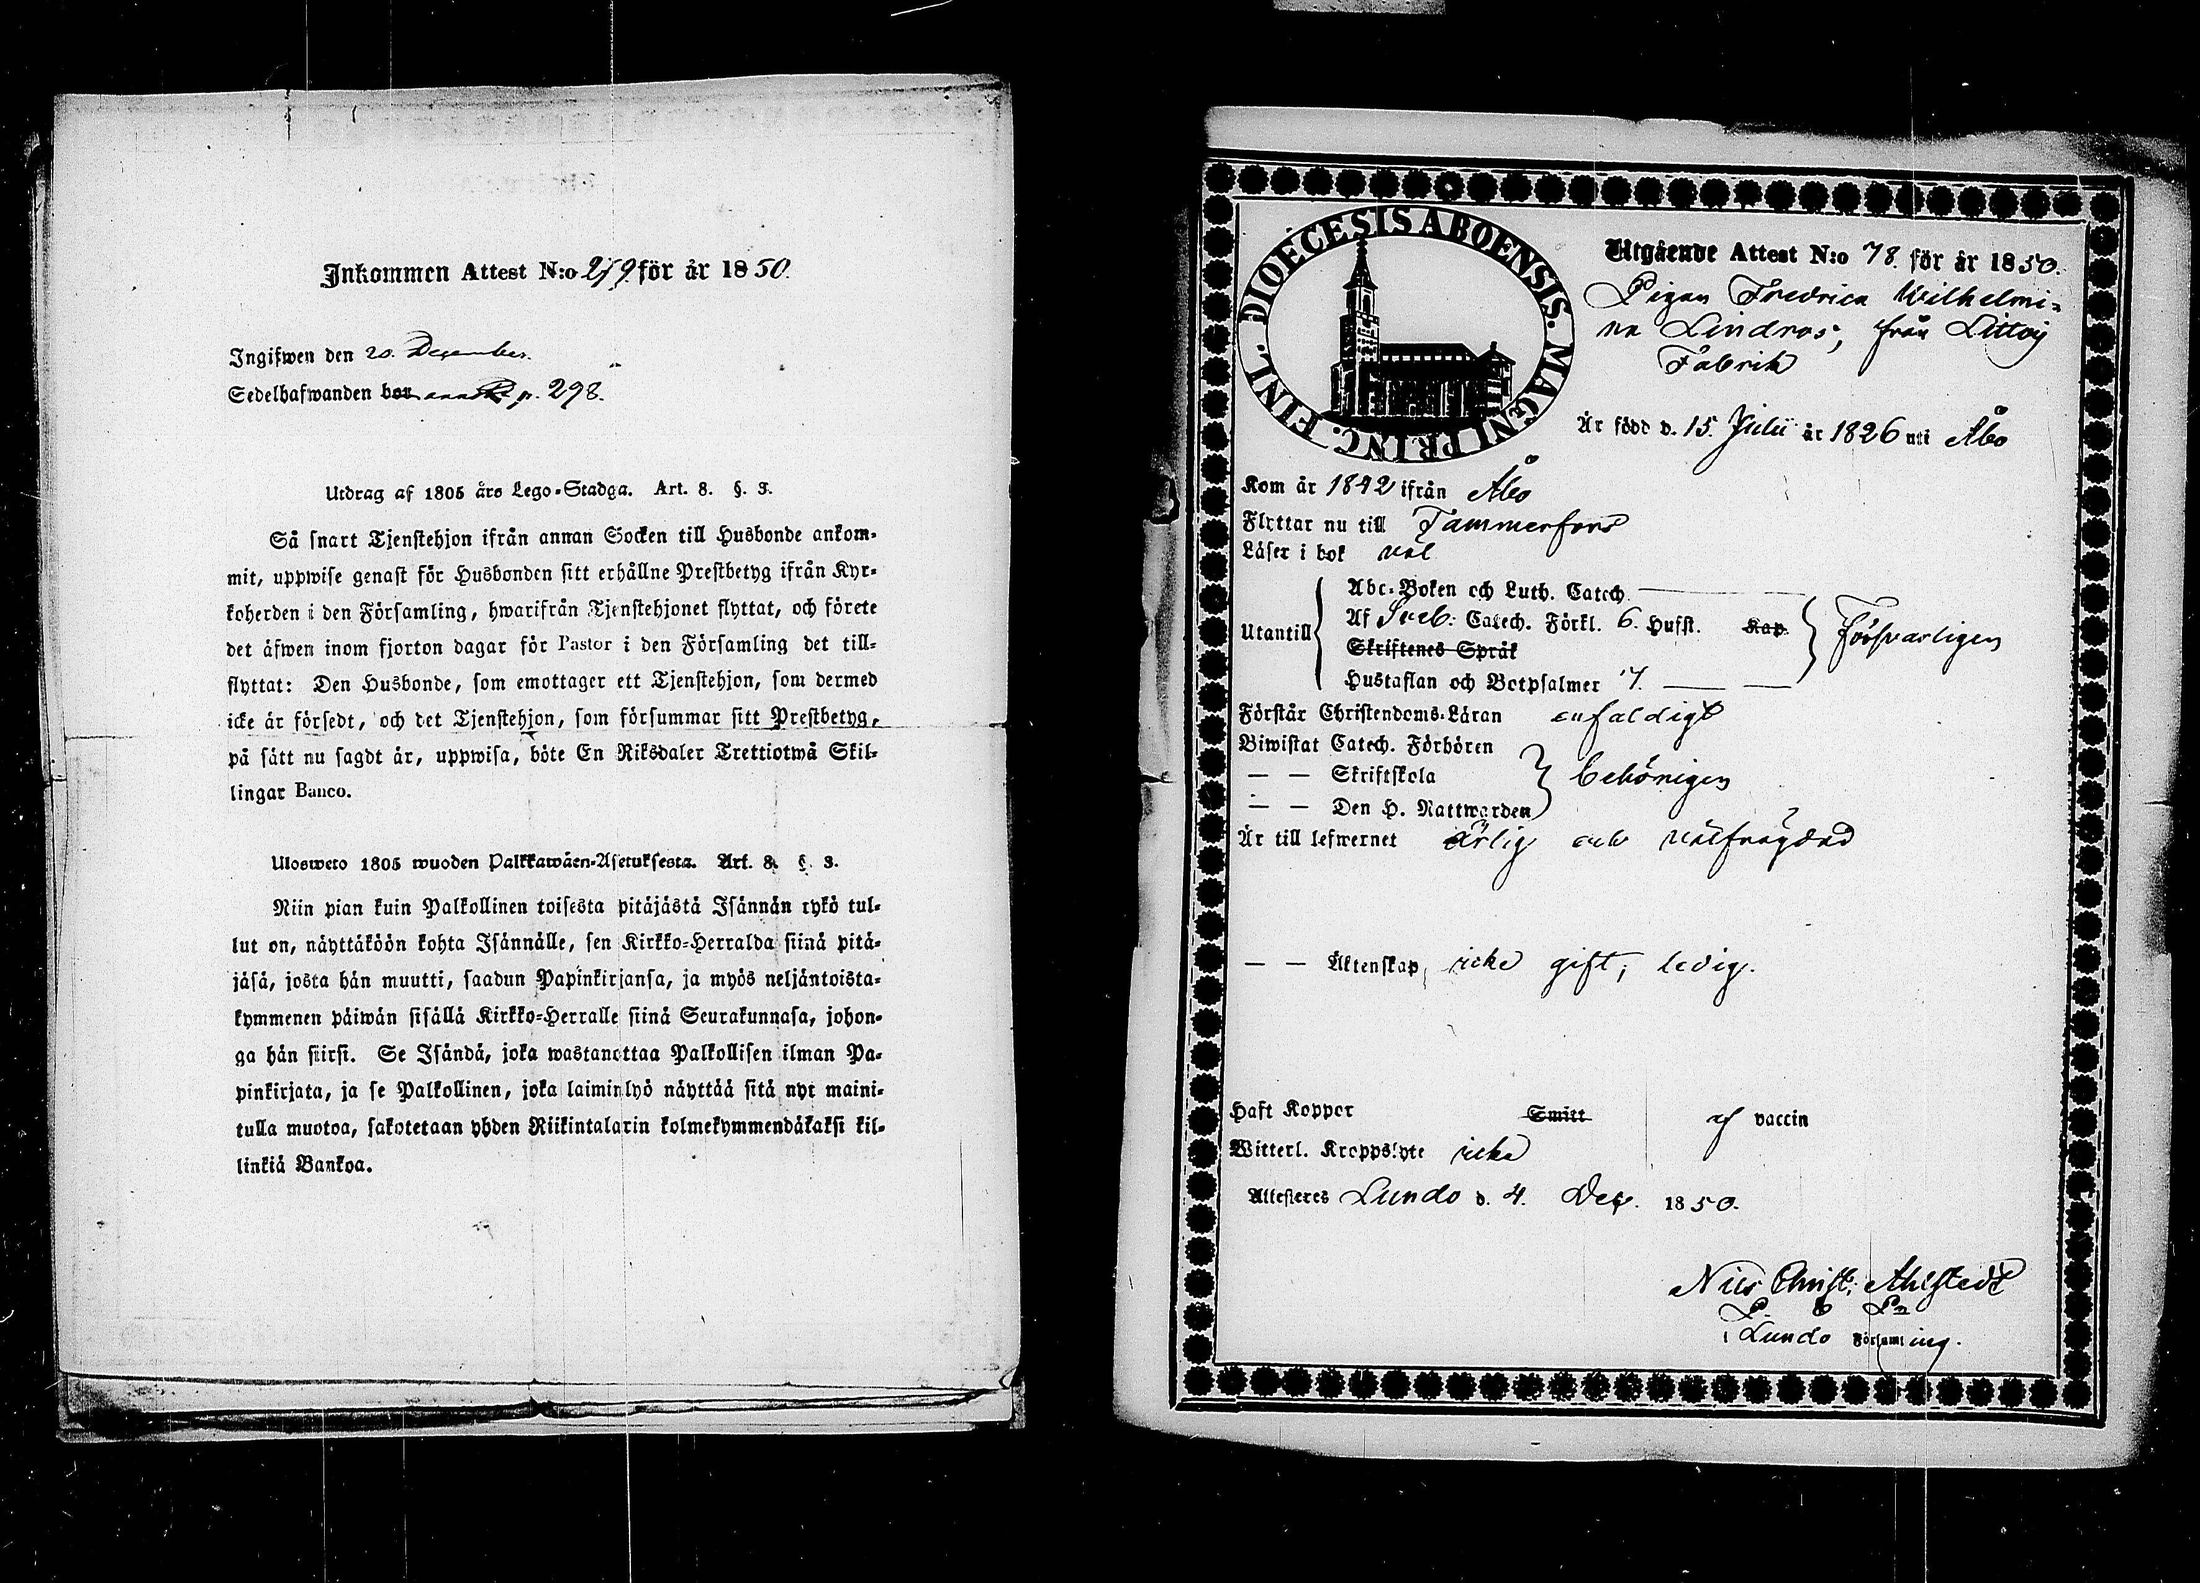 Inkommen Attest N:o 219. för år 1850.
Ingifwen den 20. December.
Sedelhafwanden bor p. 298.
Utdrag af 1805 års Lego-Stadga. Art. 8. §. 3.
Så snart Tjenstehjon ifrån annan Socken till Husbonde ankom-
mit, uppwise genast för Husbonden sitt erhållne Prestbetyg ifrån Kyr-
koherden i den Församling, hwarifrån Tjenstehjonet flyttat, och förete
det äfwen inom fjorton dagar för Pastor i den Församling det till-
flyttat: Den Husbonde, som emottager ett Tjenstehjon, som dermed
icke är försedt, och det Tjenstehjon, som försummar sitt Prestbetyg,
på sätt nu sagdt är, uppwisa, böte En Riksdaler Trettiotwå Skil-
lingar Banco.
Ulosweto 1805 wuoden Palkkawäen-Asetuksesta. Art. 8. §. 3.
Niin pian kuin Palkollinen toisesta pitäjästä Isännän tykö tul-
lut on, näyttäköön kohta Isännälle, sen Kirkko-Herralda siinä pitä-
jäsä, josta hän muutti, saadun Papinkirjansa, ja myös neljäntoista-
kymmenen päiwän sisällä Kirkko-Herralle siinä Seurakunnasa, johon-
ga hän siirsi. Se Isändä, joka wastanottaa Palkollisen ilman Pa-
pinkirjata, ja se Palkollinen, joka laiminlyö näyttää sitä nyt maini-
tulla muotoa, sakotetaan yhden Riikintalarin kolmekymmendäkaksi kil-
linkiä Bankoa.
DIOECESIS ABOENSIS. MAGNI PRINC. FINL.
Utgående Attest N:o 78. för år 1850.
Pigan Fredrica Wilhelmi-
na Lindros, från Littoij
Fabrik
Är född d. 15. Julii år 1826 uti Åbo
Kom år 1842 ifrån Åbo
Flyttar nu till Tammerfors
Läser i bok väl
Utantill
Abc-Boken och Luth. Catech.
Af Sveb. Catech. Förkl. 6. Hufst. Kap.
Skriftenes Språk
Hustaflan och Botpsalmer 7.
Försvarligen
Förstår Christendoms-Läran enfaldigt
Biwistat Catech. Förhören
— — Skriftskola
— — Den H. Nattwarden
behörigen
Är till lefwernet ärlig och välfrägdad
— — Äktenskap, icke gift; ledig.
Haft Koppor Smitt af vaccin
Witterl. Kroppslyte icke
Attesteras Lundo d. 4. Dec. 1850.
Nils Christ. Ahlstedt
i Lundo Församling.